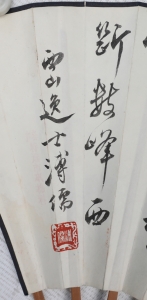 斷數峰西
西山逸士溥儒